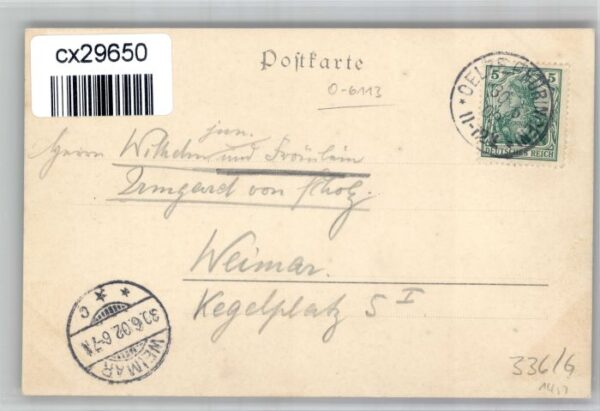 cx29650
Postkarte
O-6113
5 5
DEUTSCHES REICH
jun.
Herrn Wilhelm und Fräulein
Irmgard von Scholz
Weimar.
Kegelplatz 5 I
WEIMAR
30.6.02 6-7N
* * c
336/6